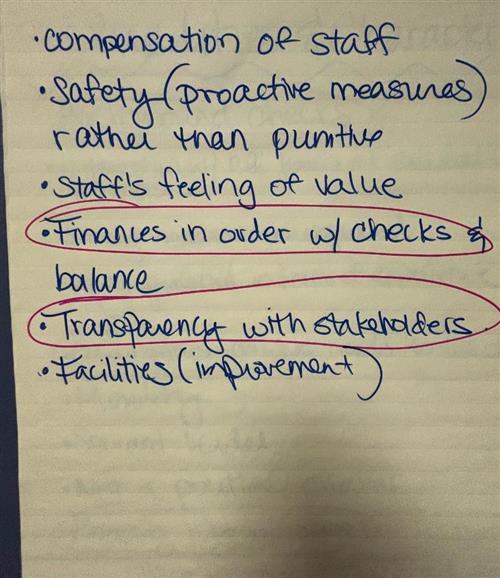 ·compensation of staff
·Safety (proactive measures)
rather than punitive
·Staff's feeling of value
·Finances in order w/ checks &
balance
·Transparency with stakeholders
·Facilities (improvement)